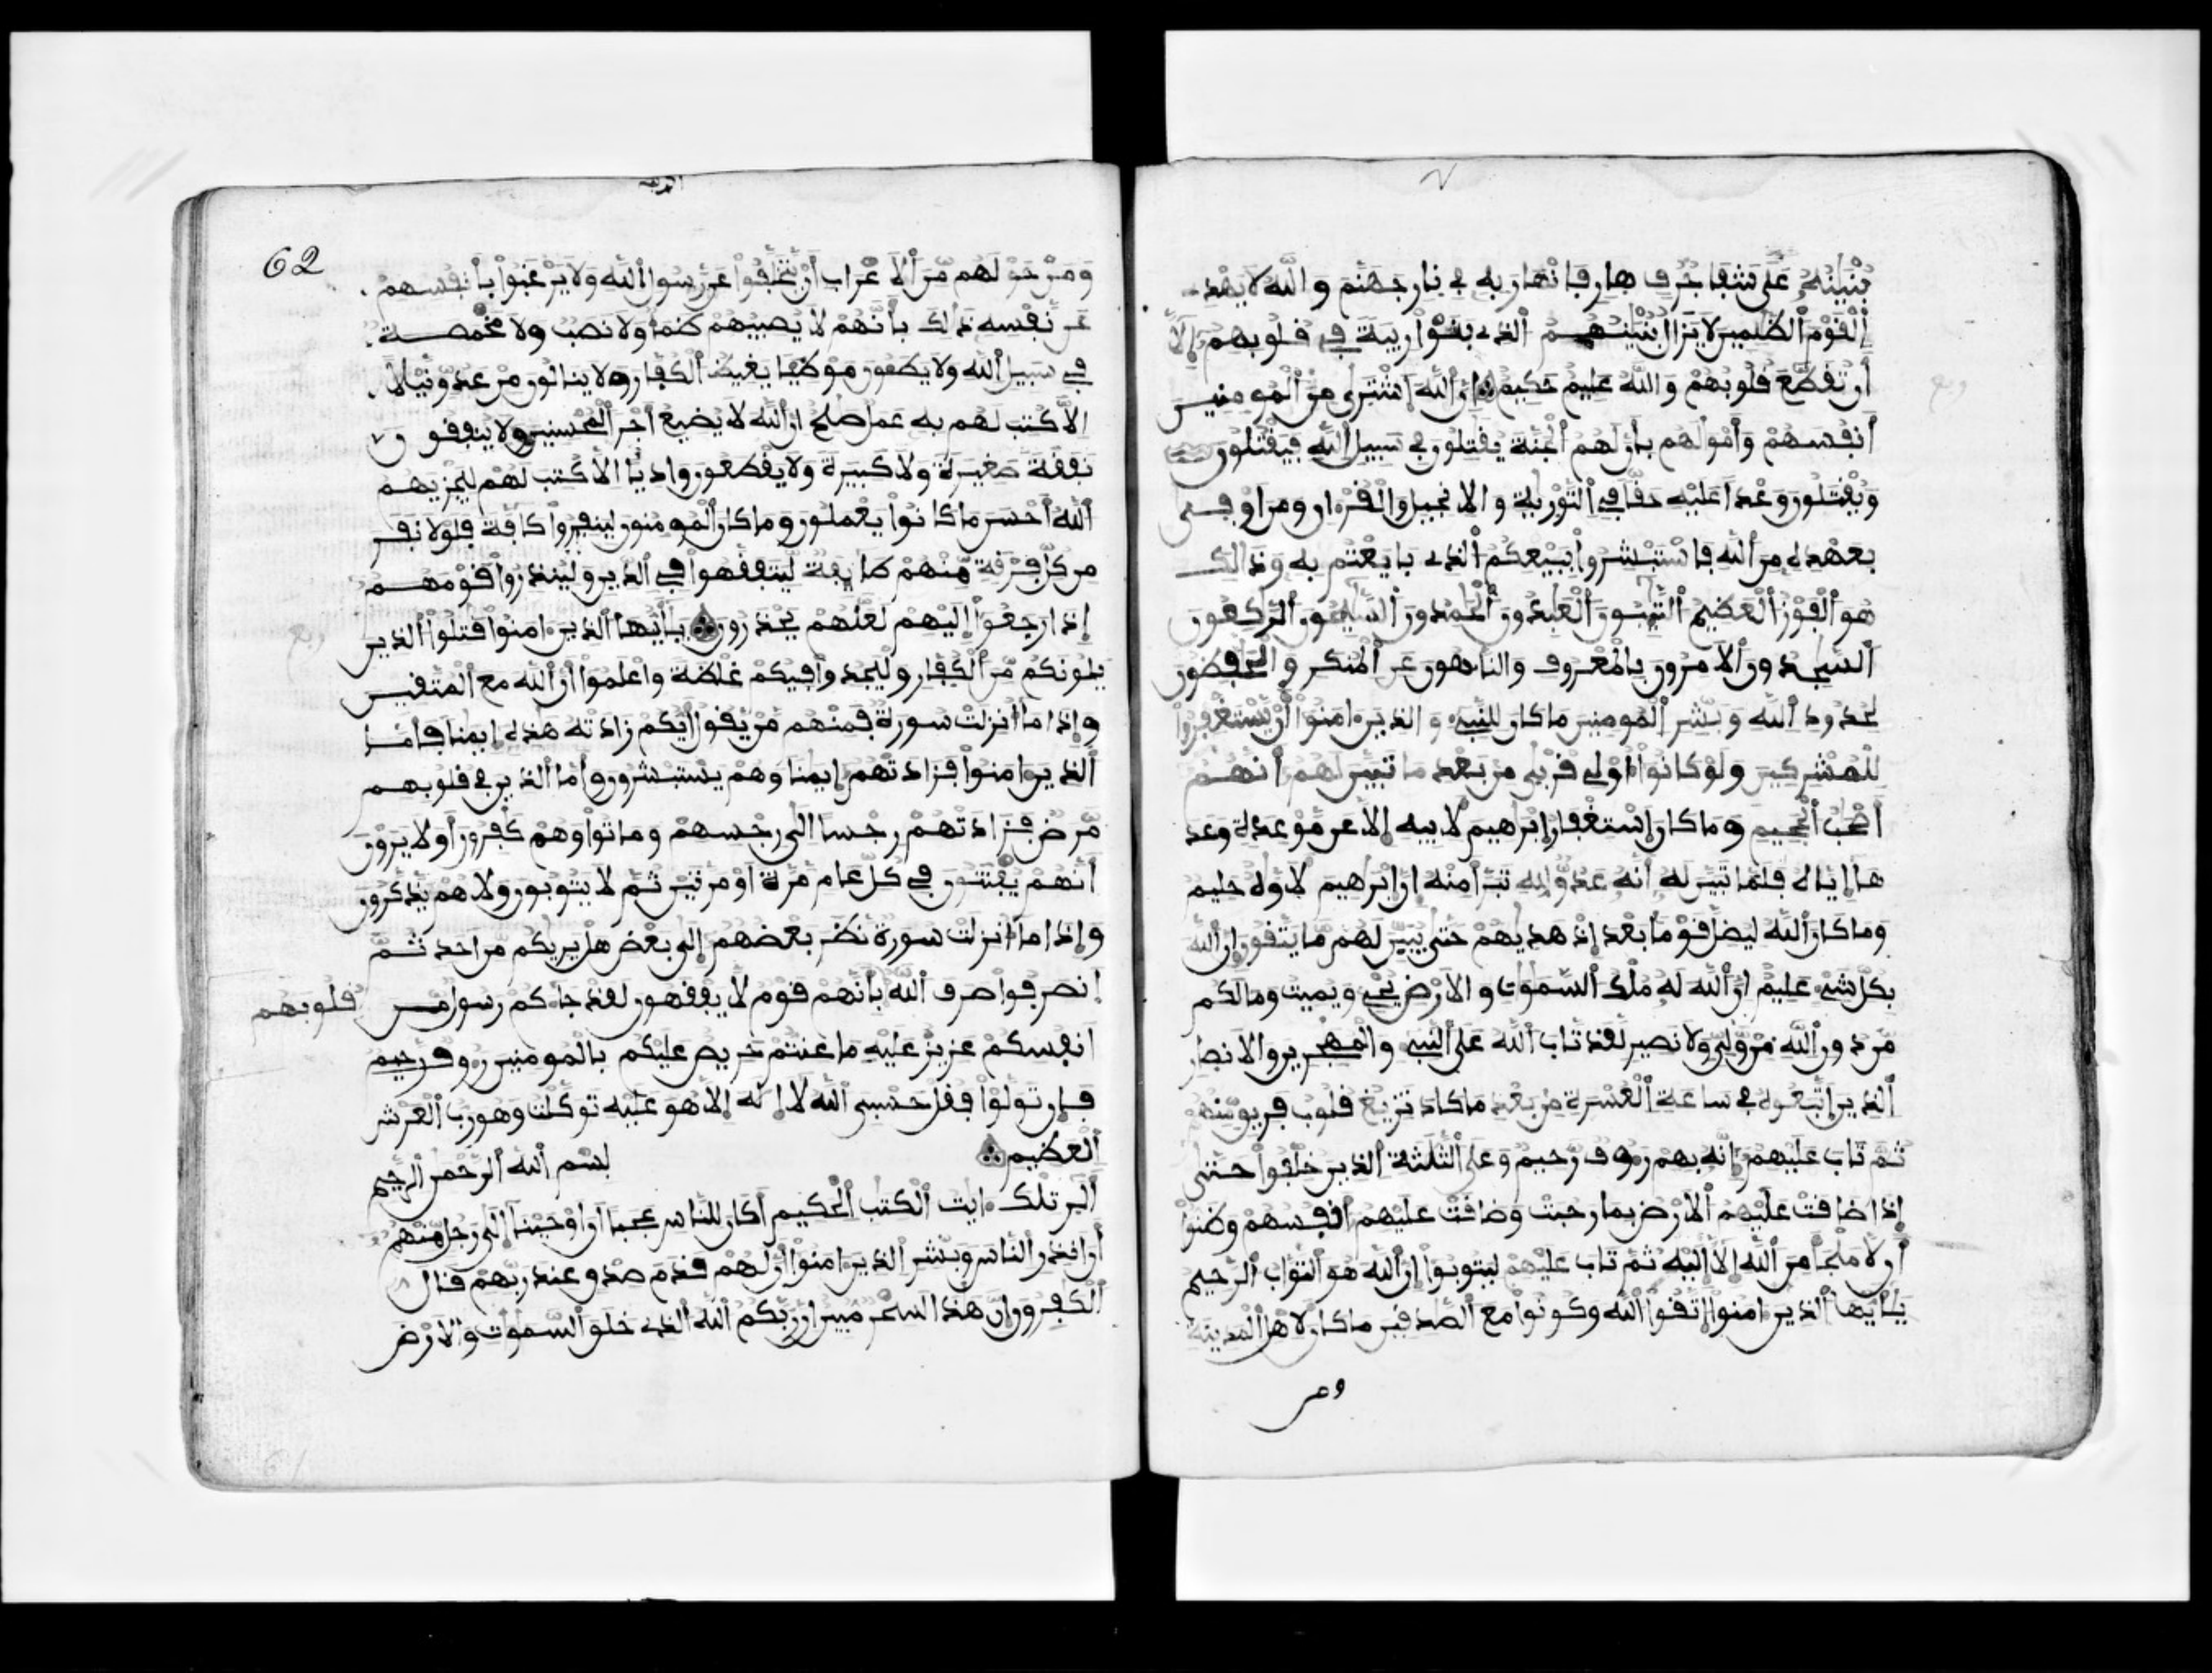 بُنْيَٰنَهُۥ عَلَىٰ شَفَا جُرُفٍ هَارٍ فَانْهَارَ بِهِۦ فِے نَارِ جَهَنَّمَ وَاللَّهُ لَا يَهْدِے
اَ۬لْقَوْمَ اَ۬لظَّٰلِمِينَ لَا يَزَالُ بُنْيَٰنُهُمُ اُ۬لذِے بَنَوْاْ رِيبَةٗ فِے قُلُوبِهِمُۥٓ إِلَّآ
أَن تُقَطَّعَ قُلُوبُهُمْ وَاللَّهُ عَلِيمٌ حَكِيمٌ إِنَّ اَ۬للَّهَ اَ۪شْتَر۪ىٰ مِنَ اَ۬لْمُومِنِينَ
أَنفُسَهُمْ وَأَمْوَٰلَهُم بِأَنَّ لَهُمُ اُ۬لْجَنَّةَ يُقَٰتِلُونَ فِے سَبِيلِ اِ۬للَّهِ فَيَقْتُلُونَ
وَيُقْتَلُونَ وَعْداً عَلَيْهِ حَقّاٗ فِے اِ۬لتَّوْر۪يٰةِ وَالِانجِيلِ وَالْقُرْءَانِ وَمَنَ اَوْف۪ىٰ
بِعَهْدِهِۦ مِنَ اَ۬للَّهِ فَاسْتَبْشِرُواْ بِبَيْعِكُمُ اُ۬لذِے بَايَعْتُم بِهِۦ وَذَٰلِكَ
هُوَ اَ۬لْفَوْزُ اُ۬لْعَظِيمُ اُ۬لتَّٰٓئِبُونَ اَ۬لْعَٰبِدُونَ اَ۬لْحَٰمِدُونَ اَ۬لسَّٰٓئِحُونَ اَ۬لرَّٰكِعُونَ
اَ۬لسَّٰجِدُونَ اَ۬لَامِرُونَ بِالْمَعْرُوفِ وَالنَّاهُونَ عَنِ اِ۬لْمُنكَرِ وَالْحَٰفِظُونَ
لِحُدُودِ اِ۬للَّهِ وَبَشِّرِ اِ۬لْمُومِنِينَ مَا كَانَ لِلنَّبِےٓءِ وَالذِينَ ءَامَنُوٓاْ أَنْ يَّسْتَغْفِرُواْ
لِلْمُشْرِكِينَ وَلَوْ كَانُوٓاْ أُوْلِے قُرْب۪ىٰ مِنۢ بَعْدِ مَا تَبَيَّنَ لَهُمُۥٓ أَنَّهُمُۥٓ
أَصْحَٰبُ اُ۬لْجَحِيمِ وَمَا كَانَ اَ۪سْتِغْفَارُ إِبْرَٰهِيمَ لِأَبِيهِ إِلَّا عَن مَّوْعِدَةٖ وَعَدَ
هَآ إِيَّاهُ فَلَمَّا تَبَيَّنَ لَهُۥٓ أَنَّهُۥ عَدُوّٞ لِلهِ تَبَرَّأَ مِنْهُ إِنَّ إِبْرَٰهِيمَ لَأَوَّٰهٌ حَلِيمٞ
وَمَا كَانَ اَ۬للَّهُ لِيُضِلَّ قَوْماَۢ بَعْدَ إِذْ هَد۪يٰهُمْ حَتَّىٰ يُبَيِّنَ لَهُم مَّا يَتَّقُونَ إِنَّ اَ۬للَّهَ
بِكُلِّ شَےْءٍ عَلِيمٌ اِنَّ اَ۬للَّهَ لَهُۥ مُلْكُ اُ۬لسَّمَٰوَٰتِ وَالَارْضِ يُحْيِۦ وَيُمِيتُ وَمَا لَكُم
مِّن دُونِ اِ۬للَّهِ مِنْ وَّلِيّٖ وَلَا نَصِيرٖ لَّقَد تَّابَ اَ۬للَّهُ عَلَى اَ۬لنَّبِےٓءِ وَالْمُهَٰجِرِينَ وَالَانصٰارِ
اِ۬لذِينَ اَ۪تَّبَعُوهُ فِے سَاعَةِ اِ۬لْعُسْرَةِ مِنۢ بَعْدِ مَا كَادَ تَزِيغُ قُلُوبُ فَرِيقٖ مِّنْهُمْ
ثُمَّ تَابَ عَلَيْهِمُۥٓ إِنَّهُۥ بِهِمْ رَءُوفٞ رَّحِيمٞ وَعَلَى اَ۬لثَّلَٰثَةِ اِ۬لذِينَ خُلِّفُواْ حَتَّىٰٓ
إِذَا ضَاقَتْ عَلَيْهِمُ اُ۬لَارْضُ بِمَا رَحُبَتْ وَضَاقَتْ عَلَيْهِمُۥٓ أَنفُسُهُمْ وَظَنُّوٓاْ
أَن لَّا مَلْجَأَ مِنَ اَ۬للَّهِ إِلَّآ إِلَيْهِ ثُمَّ تَابَ عَلَيْهِمْ لِيَتُوبُوٓاْ إِنَّ اَ۬للَّهَ هُوَ اَ۬لتَّوَّابُ اُ۬لرَّحِيمُ
يَٰٓأَيُّهَا اَ۬لذِينَ ءَامَنُواْ اُ۪تَّقُواْ اُ۬للَّهَ وَكُونُواْ مَعَ اَ۬لصَّٰدِقِينَ مَا كَانَ لِأَهْلِ اِ۬لْمَدِينَةِ
ومن
62
وَمَنْ حَوْلَهُم مِّنَ اَ۬لَاعْرَابِ أَنْ يَّتَخَلَّفُواْ عَن رَّسُولِ اِ۬للَّهِ وَلَا يَرْغَبُواْ بِأَنفُسِهِمْ
عَن نَّفْسِهِۦ ذَٰلِكَ بِأَنَّهُمْ لَا يُصِيبُهُمْ ظَمَأٞ وَلَا نَصَبٞ وَلَا مَخْمَصَةٞ
فِے سَبِيلِ اِ۬للَّهِ وَلَا يَطَـُٔونَ مَوْطِئاٗ يَغِيظُ اُ۬لْكُفَّارَ وَلَا يَنَالُونَ مِنْ عَدُوّٖ نَّيْلاً
اِلَّا كُتِبَ لَهُم بِهِۦ عَمَلٞ صَٰلِحٌ اِنَّ اَ۬للَّهَ لَا يُضِيعُ أَجْرَ اَ۬لْمُحْسِنِينَ وَلَا يُنفِقُونَ
نَفَقَةٗ صَغِيرَةٗ وَلَا كَبِيرَةٗ وَلَا يَقْطَعُونَ وَادِياً اِلَّا كُتِبَ لَهُمْ لِيَجْزِيَهُمُ
اُ۬للَّهُ أَحْسَنَ مَا كَانُواْ يَعْمَلُونَ وَمَا كَانَ اَ۬لْمُومِنُونَ لِيَنفِرُواْ كَآفَّةٗ فَلَوْلَا نَفَرَ
مِن كُلِّ فِرْقَةٖ مِّنْهُمْ طَآئِفَةٞ لِّيَتَفَقَّهُواْ فِے اِ۬لدِّينِ وَلِيُنذِرُواْ قَوْمَهُمُۥٓ
إِذَا رَجَعُوٓاْ إِلَيْهِمْ لَعَلَّهُمْ يَحْذَرُونَ يَٰٓأَيُّهَا اَ۬لذِينَ ءَامَنُواْ قَٰتِلُواْ اُ۬لذِينَ
يَلُونَكُم مِّنَ اَ۬لْكُفَّارِ وَلْيَجِدُواْ فِيكُمْ غِلْظَةٗ وَاعْلَمُوٓاْ أَنَّ اَ۬للَّهَ مَعَ اَ۬لْمُتَّقِينَ
وَإِذَا مَآ أُنزِلَتْ سُورَةٞ فَمِنْهُم مَّنْ يَّقُولُ أَيُّكُمْ زَادَتْهُ هَٰذِهِۦٓ إِيمَٰناٗ فَأَمَّا
اَ۬لذِينَ ءَامَنُواْ فَزَادَتْهُمُۥٓ إِيمَٰناٗ وَهُمْ يَسْتَبْشِرُونَ وَأَمَّا اَ۬لذِينَ فِے قُلُوبِهِم
مَّرَضٞ فَزَادَتْهُمْ رِجْساً اِلَىٰ رِجْسِهِمْ وَمَاتُواْ وَهُمْ كَٰفِرُونَ أَوَلَا يَرَوْنَ
أَنَّهُمْ يُفْتَنُونَ فِے كُلِّ عَامٖ مَّرَّةً اَوْ مَرَّتَيْنِ ثُمَّ لَا يَتُوبُونَ وَلَا هُمْ يَذَّكَّرُونَ
وَإِذَا مَآ أُنزِلَتْ سُورَةٞ نَّظَرَ بَعْضُهُمُۥٓ إِلَىٰ بَعْضٍ هَلْ يَر۪يٰكُم مِّنَ اَحَدٖ ثُمَّ
اَ۪نصَرَفُواْ صَرَفَ اَ۬للَّهُ بِأَنَّهُمْ قَوْمٞ لَّا يَفْقَهُونَ لَقَدْ جَآءَكُمْ رَسُولٞ مِّنَ
قلوبهم
اَنفُسِكُمْ عَزِيزٌ عَلَيْهِ مَا عَنِتُّمْ حَرِيصٌ عَلَيْكُم بِالْمُومِنِينَ رَءُوفٞ رَّحِيمٞ
فَإِن تَوَلَّوْاْ فَقُلْ حَسْبِيَ اَ۬للَّهُ لَآ إِلَٰهَ إِلَّا هُوَ عَلَيْهِ تَوَكَّلْتُ وَهُوَ رَبُّ اُ۬لْعَرْشِ
اِ۬لْعَظِيمِ
بِسْمِ اِ۬للَّهِ اِ۬لرَّحْمَٰنِ اِ۬لرَّحِيمِ
أَلَٓر۪ تِلْكَ ءَايَٰتُ اُ۬لْكِتَٰبِ اِ۬لْحَكِيمِ أَكَانَ لِلنَّاسِ عَجَباً اَنَ اَوْحَيْنَآ إِلَىٰ رَجُلٖ مِّنْهُمُۥٓ
أَنَ اَنذِرِ اِ۬لنَّاسَ وَبَشِّرِ اِ۬لذِينَ ءَامَنُوٓاْ أَنَّ لَهُمْ قَدَمَ صِدْقٍ عِندَ رَبِّهِمْ قَالَ
اَ۬لْكَٰفِرُونَ إِنَّ هَٰذَا لَسِحْرٞ مُّبِينٌ اِنَّ رَبَّكُمُ اُ۬للَّهُ اُ۬لذِے خَلَقَ اَ۬لسَّمَٰوَٰتِ وَالَارْضَ